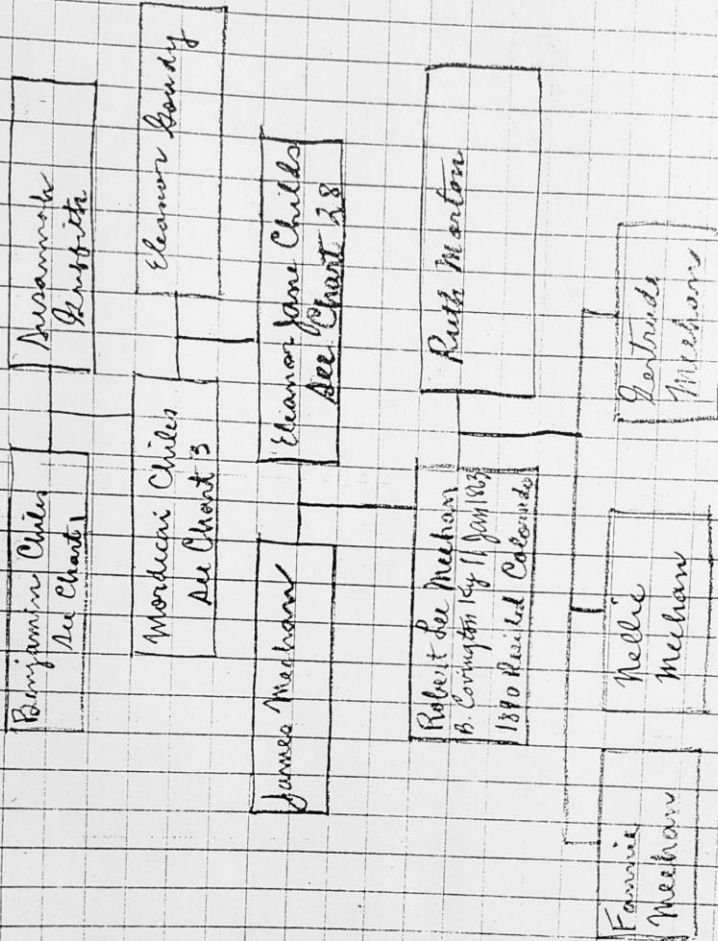 Benjamin Chiles
See Chart 1
Susannah
Griffith
Mordicai Chiles
See Chart 3
Eleanor Goudy
James Meehan
Eleanor Jane Childs
See Chart 28
Robert Lee Meehan
B. Covington Ky 11 Jan 1863
1890 Resided Colorado
Ruth Morton
Fannie
Meehan
Nellie
Meehan
Gertrude
Meehan